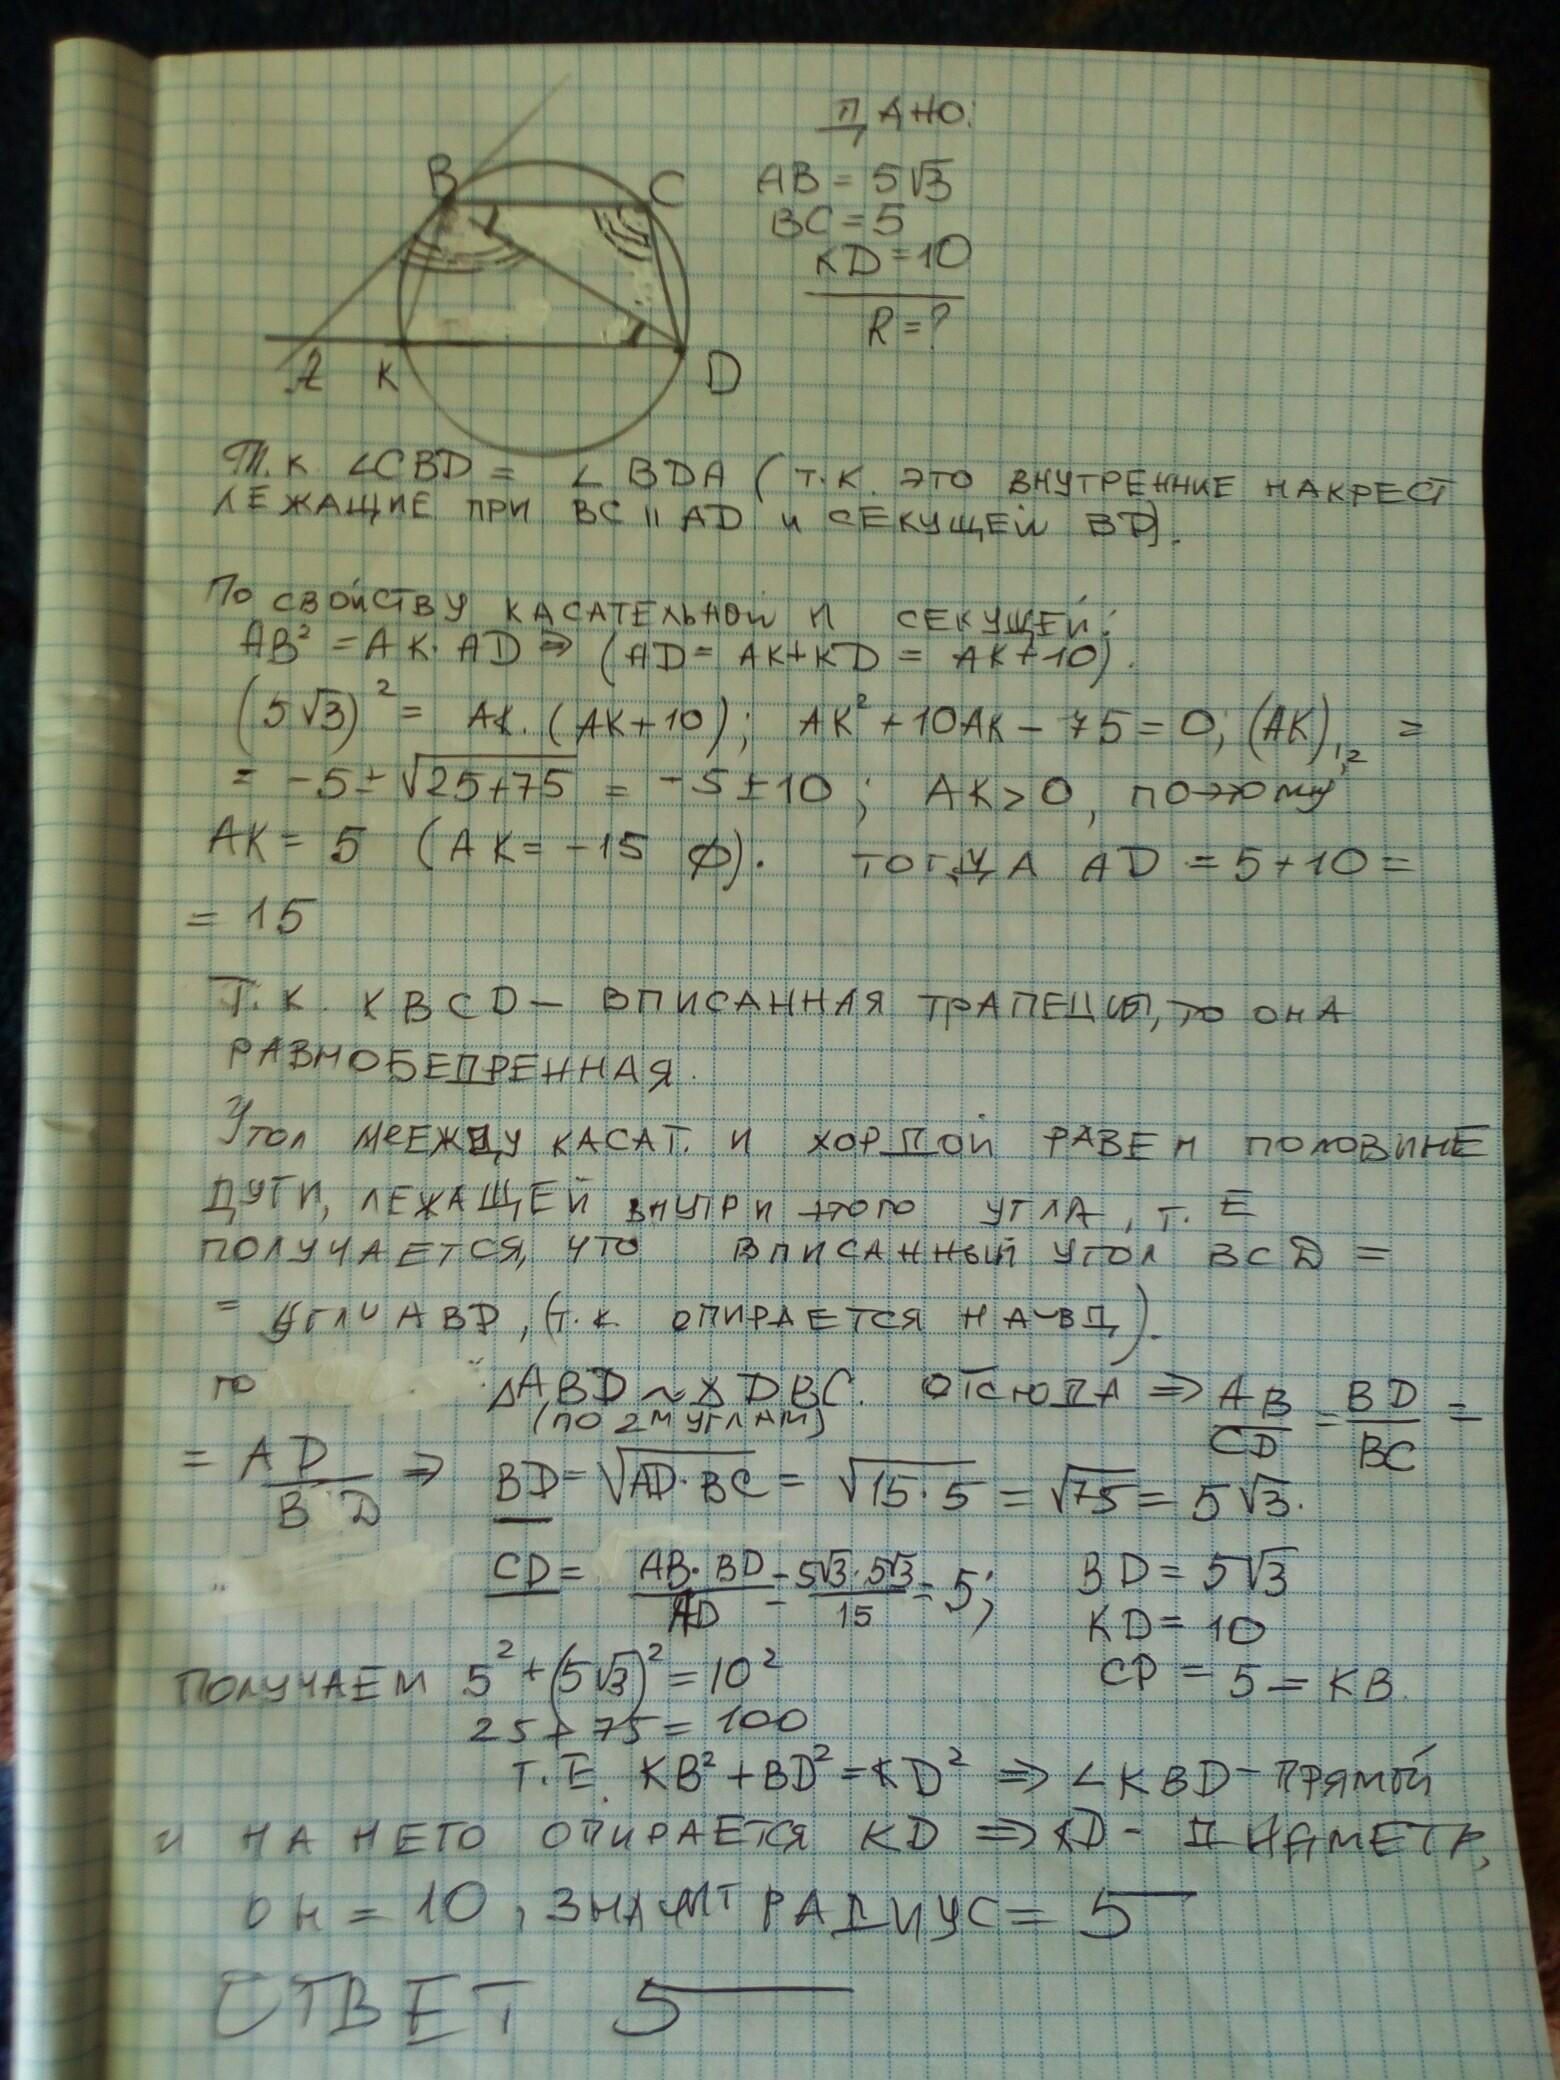 ДАНО:
B C
AB = 5√3
BC = 5
KD = 10
R = ?
A K D
Т.К ∠CBD = ∠BDA (Т.К. ЭТО ВНУТРЕННИЕ НАКРЕСТ
ЛЕЖАЩИЕ ПРИ BC || AD И СЕКУЩЕЙ BD).
ПО СВОЙСТВУ КАСАТЕЛЬНОЙ И СЕКУЩЕЙ:
AB² = AK · AD ⇒ (AD = AK+KD = AK+10).
(5√3)² = AK · (AK+10); AK² + 10AK − 75 = 0; (AK)₁,₂ =
= −5 ± √25+75 = −5 ± 10; AK > 0, ПОЭТОМУ
AK = 5 (AK = −15 ∅). ТОГДА AD = 5+10 =
= 15
Т.К. KBCD — ВПИСАННАЯ ТРАПЕЦИЯ, ТО ОНА
РАВНОБЕДРЕННАЯ.
УГОЛ МЕЖДУ КАСАТ. И ХОРДОЙ РАВЕН ПОЛОВИНЕ
ДУГИ, ЛЕЖАЩЕЙ ВНУТРИ ЭТОГО УГЛА, Т.Е
ПОЛУЧАЕТСЯ, ЧТО ВПИСАННЫЙ УГОЛ BCD =
= УГЛУ ABD, (Т.К. ОПИРАЕТСЯ НА ◡ВД).
ТО △ABD ~ △DBC. ОТСЮДА ⇒ AB/CD = BD/BC =
(ПО 2М УГЛАМ)
= AD/BD ⇒ BD = √AD·BC = √15·5 = √75 = 5√3.
CD = AB·BD/AD = 5√3·5√3/15 = 5; BD = 5√3
KD = 10
CD = 5 = KB.
ПОЛУЧАЕМ 5² + (5√3)² = 10²
25 + 75 = 100
Т.Е. KB² + BD² = KD² ⇒ ∠KBD − ПРЯМОЙ
И НА НЕГО ОПИРАЕТСЯ KD ⇒ KD − ДИАМЕТР,
ОН = 10, ЗНАЧИТ РАДИУС = 5
ОТВЕТ 5